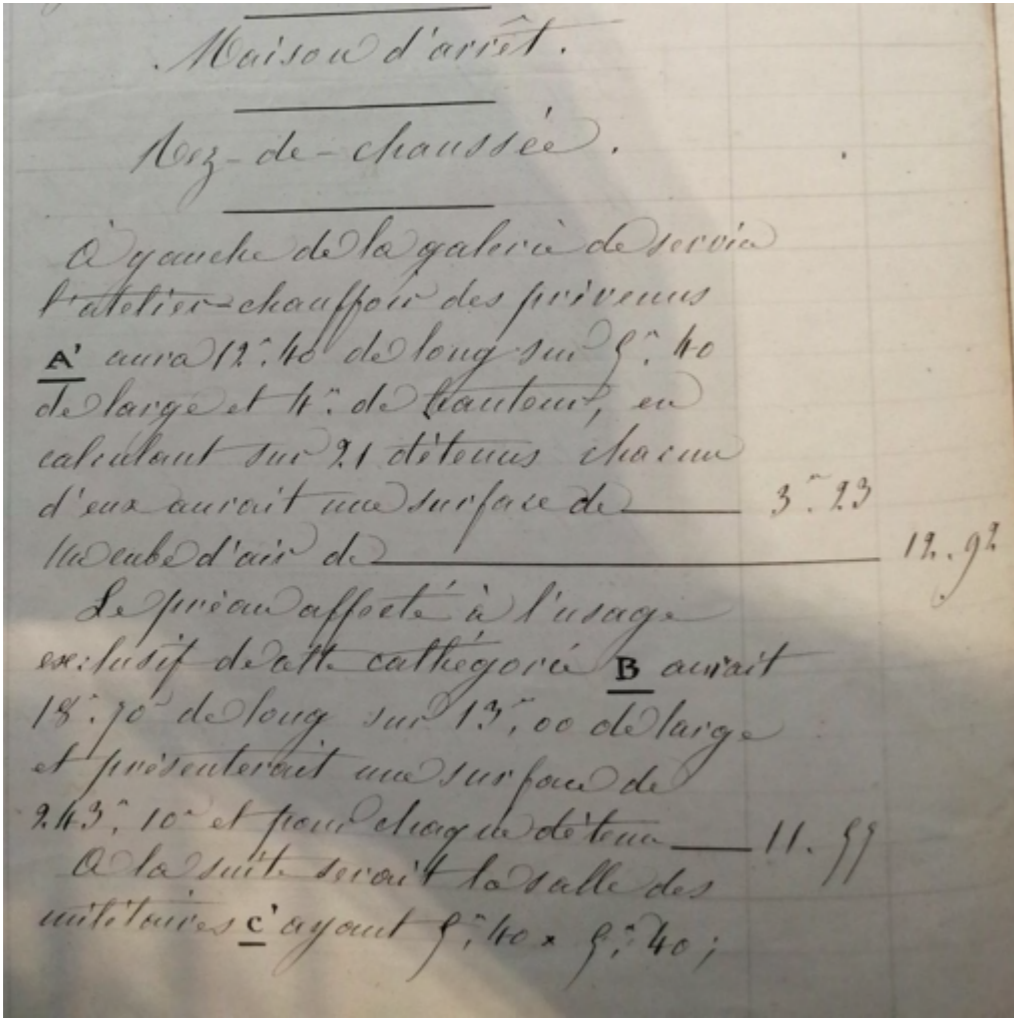 Maison d'arrêt.
Rez-de-chaussée.
A gauche de la galerie de service
l'atelier-chauffoir des prévenus
A' aura 12.m 40 de long sur 5.m 40
de large et 4.m de hauteur, en
calculant sur 21 détenus chacun
d'eux aurait une surface de 3.m 23
Un cube d'air de 12.92
Le préau affecté à l'usage
exclusif de cette cathégorie B aurait
18.m 70 de long sur 13.m 00 de large
et présenterait une surface de
243.m 10c et pour chaque détenu 11.55
A la suite serait la salle des
militaires C' ayant 5.m 40 x 5.m 40;